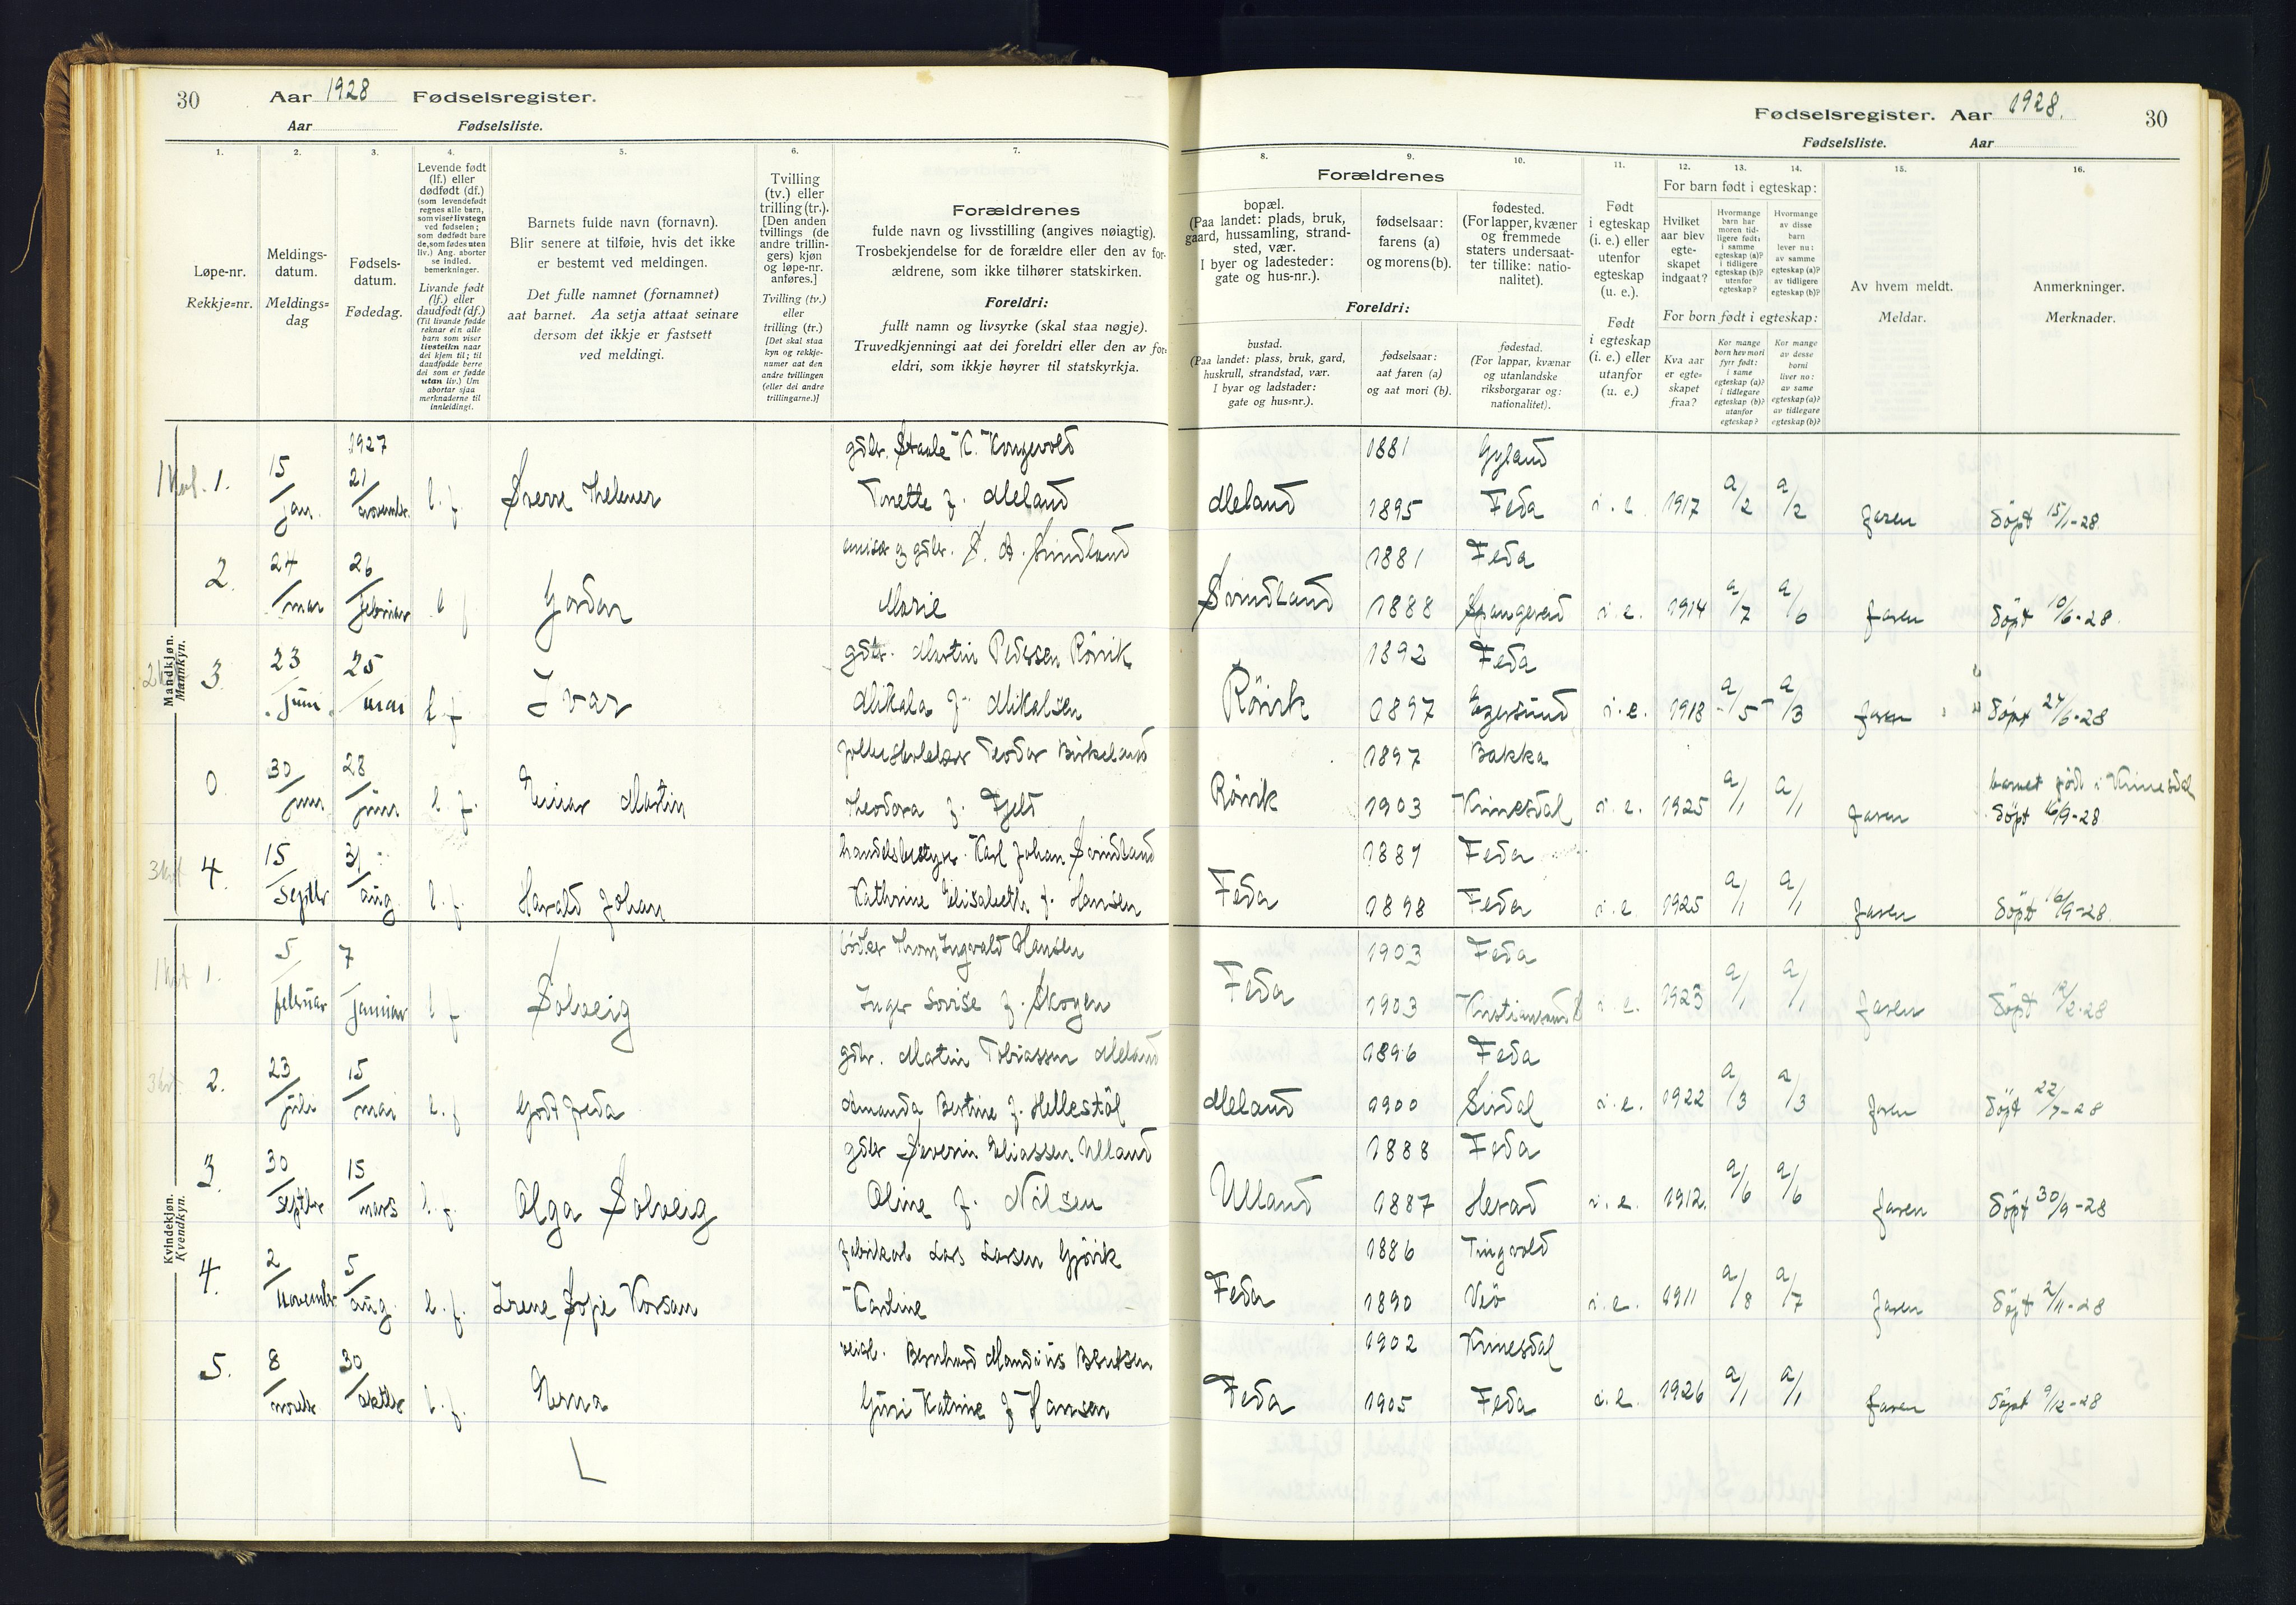 30 Aar 1928 Fødselsregister.
Aar Fødselsliste.
Fødselsregister. Aar 1928. 30
Fødselsliste. Aar
1.
Løpe-nr.
Rekkje=nr.
2.
Meldings-
datum.
Meldings=
dag
3.
Fødsels-
datum.
Fødedag.
4.
Levende født
(lf.) eller
dødfødt (df.)
(som levendefødt
regnes alle barn,
som viser livstegn
ved fødselen;
som dødfødt bare
de, som fødes uten
liv.) Ang. aborter
se indled.
bemerkninger.
Livande født
(lf.) eller
daudfødt (df.)
(Til livande fødde
reknar ein alle
barn som viser
livsteikn naar
dei kjem til; til
daudfødde berre
dei som er fødde
utan liv.) Um
abortar sjaa
merknaderne til
innleidingi.
5.
Barnets fulde navn (fornavn).
Blir senere at tilføie, hvis det ikke
er bestemt ved meldingen.
Det fulle namnet (fornamnet)
aat barnet. Aa setja attaat seinare
dersom det ikkje er fastsett
ved meldingi.
6.
Tvilling
(tv.) eller
trilling (tr.).
[Den anden
tvillings (de
andre trillin-
gers) kjøn
og løpe-nr.
anføres.]
Tvilling (tv.)
eller
trilling (tr.)
[Det skal staa
kyn og rekkje-
numer aat den
andre tvillingen
(eller dei andre
trillingarne.)]
7.
Forældrenes
fulde navn og livsstilling (angives nøiagtig).
Trosbekjendelse for de forældre eller den av for-
ældrene, som ikke tilhører statskirken.
Foreldri:
fullt namn og livsyrke (skal staa nøgje).
Truvedkjenningi aat dei foreldri eller den av for=
eldri, som ikkje høyrer til statskyrkja.
8.
Forældrenes
bopæl.
(Paa landet: plads, bruk,
gaard, hussamling, strand-
sted, vær.
I byer og ladesteder:
gate og hus-nr.).
Foreldri:
bustad.
(Paa landet: plass, bruk, gard,
huskrull, strandstad, vær.
I byar og ladstader:
gate og hus=nr.).
9.
fødselsaar:
farens (a)
og morens (b).
fødselsaar:
aat faren (a)
og aat mori (b).
10.
fødested.
(For lapper, kvæner
og fremmede
staters undersaat-
ter tillike: natio-
nalitet).
fødestad.
(For lappar, kvænar
og utanlandske
riksborgarar og:
nationalitet).
11.
Født
i egteskap
(i. e.) eller
utenfor
egteskap
(u. e.).
Født
i egteskap
(i. e.) eller
utanfor
egteskap
(u. e.)
12.
For barn født i egteskap:
Hvilket
aar blev
egte-
skapet
indgaat?
For born født i egteskap:
Kva aar
er egte=
skapet
fraa?
13.
Hvormange
barn har
moren tid-
ligere født:
i samme
egteskap (a)?
i tidligere
egteskap (b)?
utenfor
egteskap?
Kor mange
born hev mori
fyrr født:
i same
egteskap (a)?
i tidlegare
egteskap (b)?
utanfor
egteskap?
14.
Hvormange
av disse
barn
lever nu:
av samme
egteskap (a)?
av tidligere
egteskap (b)?
Kor mange
av desse
borni
liver no:
av same
egteskap (a)?
av tidlegare
egteskap (b)?
15.
Av hvem meldt.
Meldar.
16.
Anmerkninger.
Merknader.
Mandkjøn.
Mannkyn.
1927
1. 15/jan. 21/novembr. l. f. Sverre Thelmer gdbr. Staale K. Kongevold 1881 Gyland
Tonette f. Meland Meland 1895 Feda i. e. 1917 a/2 a/2 faren døpt 15/1-28
2. 24/mar 26/februar l f. Gordon gdbr. S. A. Svindland 1881 Feda
Marie Svindland 1888 Spangereid i. e. 1914 a/7 a/6 faren døpt 10/6-28.
3 23/juni 25/mai l f Ivar gdbr. Martin Pedersen Rörvik 1892 Feda
Mikala f. Mikalsen Rörvik 1897 Egersund i. e. 1918 a/5 a/3 faren døpt 24/6-28
0. 30/juni 28/juni l. f. Einar Martin Teodor Birkeland 1897 Bakka
Theodora f. Fjeld Rörvik 1903 Kvinesdal i. e. 1925 a/1 a/1 faren barnet født i Kvinesdal
døpt 16/9-28
4. 15/septbr 31/aug. l. f. Harald Johan handelsbestyr. Karl Johan Svindland 1889 Feda
Kathrine Elisabeth f. Hansen Feda 1898 Feda i. e. 1925 a/1 a/1 faren døpt 16/9-28.
Kvindekjøn.
Kvendkyn.
1. 5/februar 7/januar l f Solveig bödker Thom Ingvald Hansen 1903 Feda
Inger Lovise f. Skogen Feda 1903 Kristiansund i. e. 1923 a/1 a/1 faren døpt 12/2-28
2. 23/juli 15/mai l. f Godtfreda gdbr. Martin Tobiassen Meland 1896 Feda
Amanda Bertine f. Hellestöl Meland 1900 Sirdal i. e. 1922 a/3 a/3 faren døpt 22/7-28
3. 30/septbr 15/mars l. f. Olga Solveig gdbr Severin Eliassen Ulland 1888 Feda
Oline f. Nilsen Ulland 1887 Herad i. e. 1912. a/6 a/6 faren døpt 30/9-28
4. 2/november 5/aug. l. f. Irene Sofie Korsan fabrikarb Lars Larsen Gjövik 1886 Tingvold
Karoline Feda 1890 Veö i. e. 1911 a/8 a/7 faren døpt 2/11-28
5. 8/novbr 30/oktbr l. f. Erna Bernhard Mandius Bentsen 1902 Kvinesdal
Guri Katrine f Hansen Feda 1905 Feda i. e. 1926 a/1 a/1 faren døpt 9/12-28